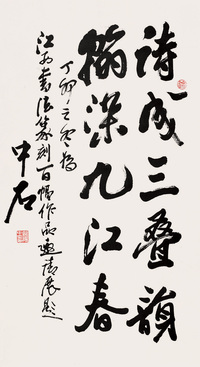 詩成三叠韻
深九江春
丁卯之冬
江西書法篆刻百幅作品邀请展题
中石